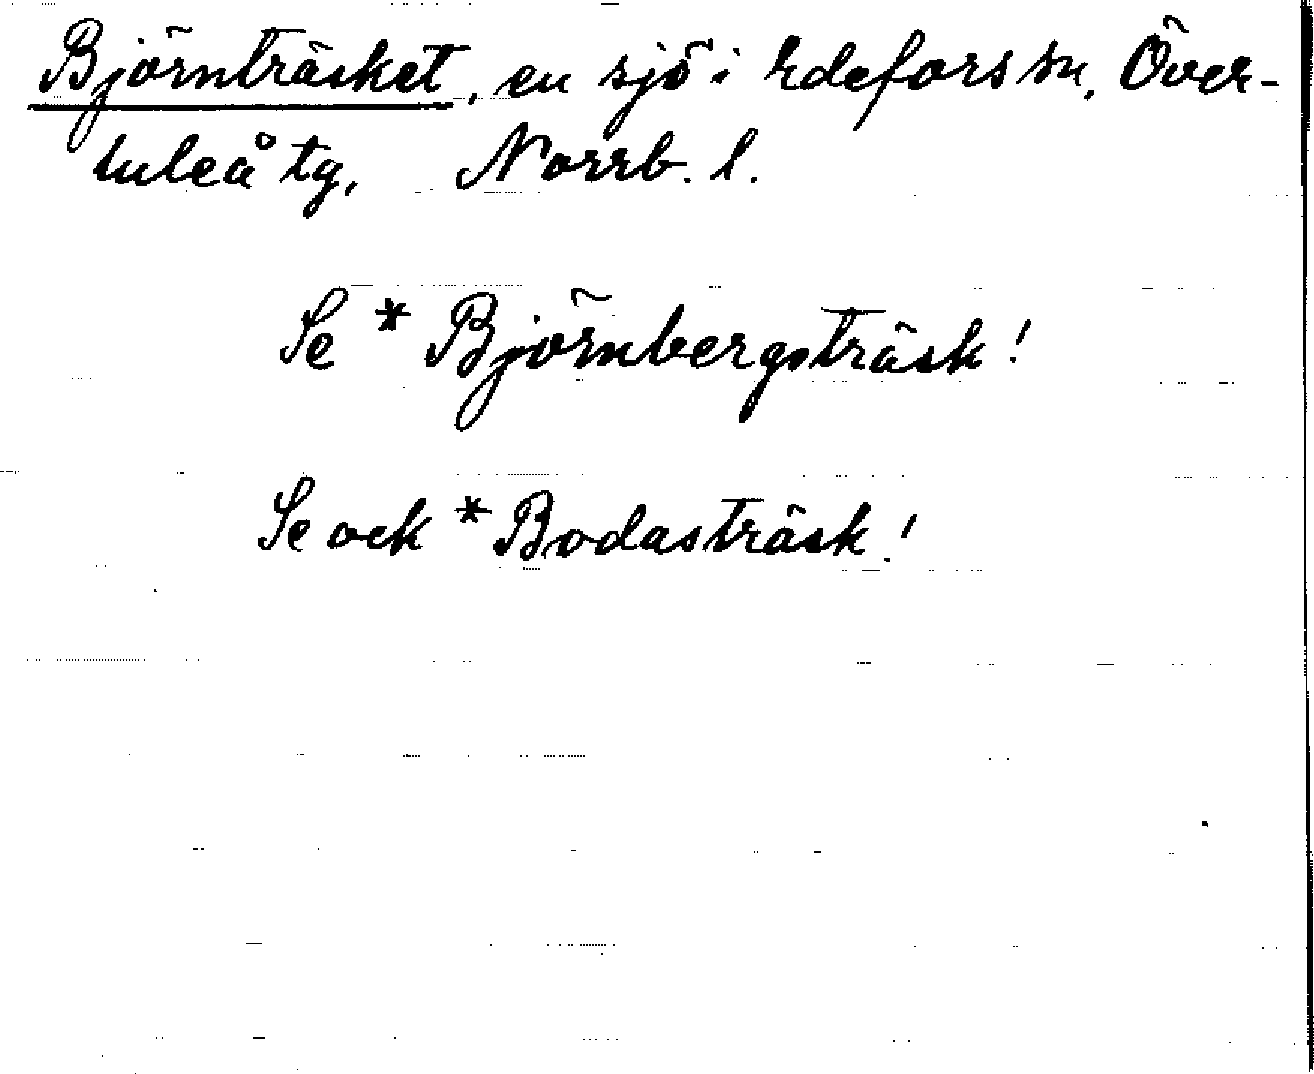 Björnträsket, en sjö i Edefors sn, Över-
luleå tg, Norrb. l.
Se * Björnbergsträsk!
Se ock * Bodasträsk!